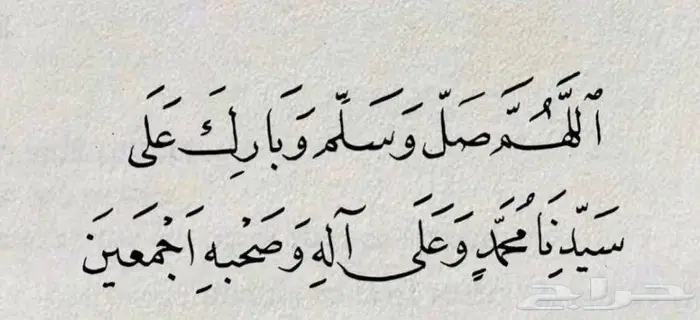 ٱللَّهُمَّ صَلِّ وَسَلِّم وَبَارِكَ عَلَى
سَيِّدِنَا مُحَمَّدٍ وَعَلَى آلِهِ وَصَحْبِهِ اَجْمَعينَ
حراج